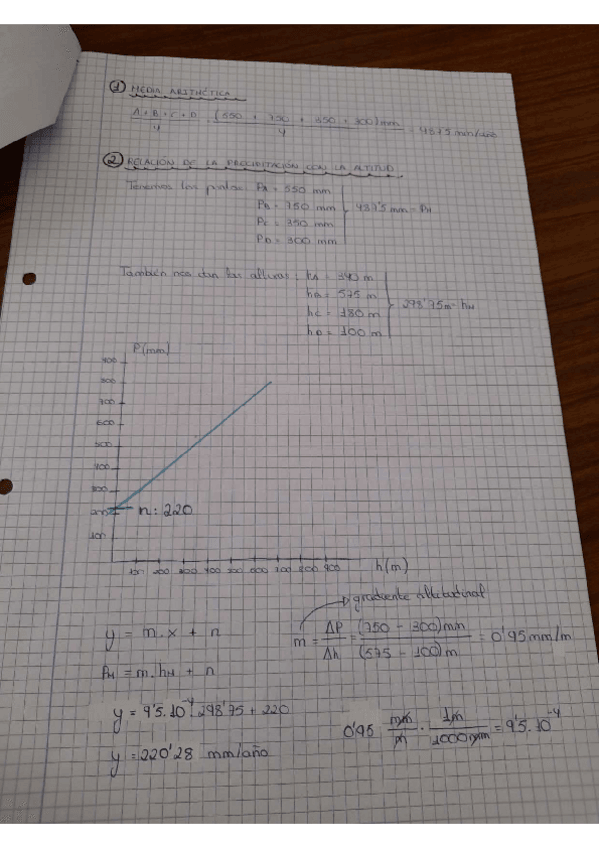 ① MEDIA ARITMÉTICA
A + B + C + D / 4 = (550 + 750 + 350 + 300) mm / 4 = 487'5 mm/año
② RELACIÓN DE LA PRECIPITACIÓN CON LA ALTITUD
Tenemos los pluvios PA = 550 mm
PB = 750 mm } 487'5 mm = PM
PC = 350 mm
PD = 300 mm
También nos dan las alturas: hA = 340 m
hB = 575 m
hC = 180 m } 298'75 m = hM
hD = 100 m
P(mm)
900
800
700
600
500
400
300
200 n: 220
100
100 200 300 400 500 600 700 800 900 h(m)
gradiente altitudinal
y = m.x + n
m = ΔP / Δh = (750 - 300) mm / (575 - 100) m = 0'95 mm/m
PM = m.hM + n
y = 9'5.10⁻⁴.298'75 + 220
0'95 mm/m . 1m/1000mm = 9'5.10⁻⁴
y = 220'28 mm/año